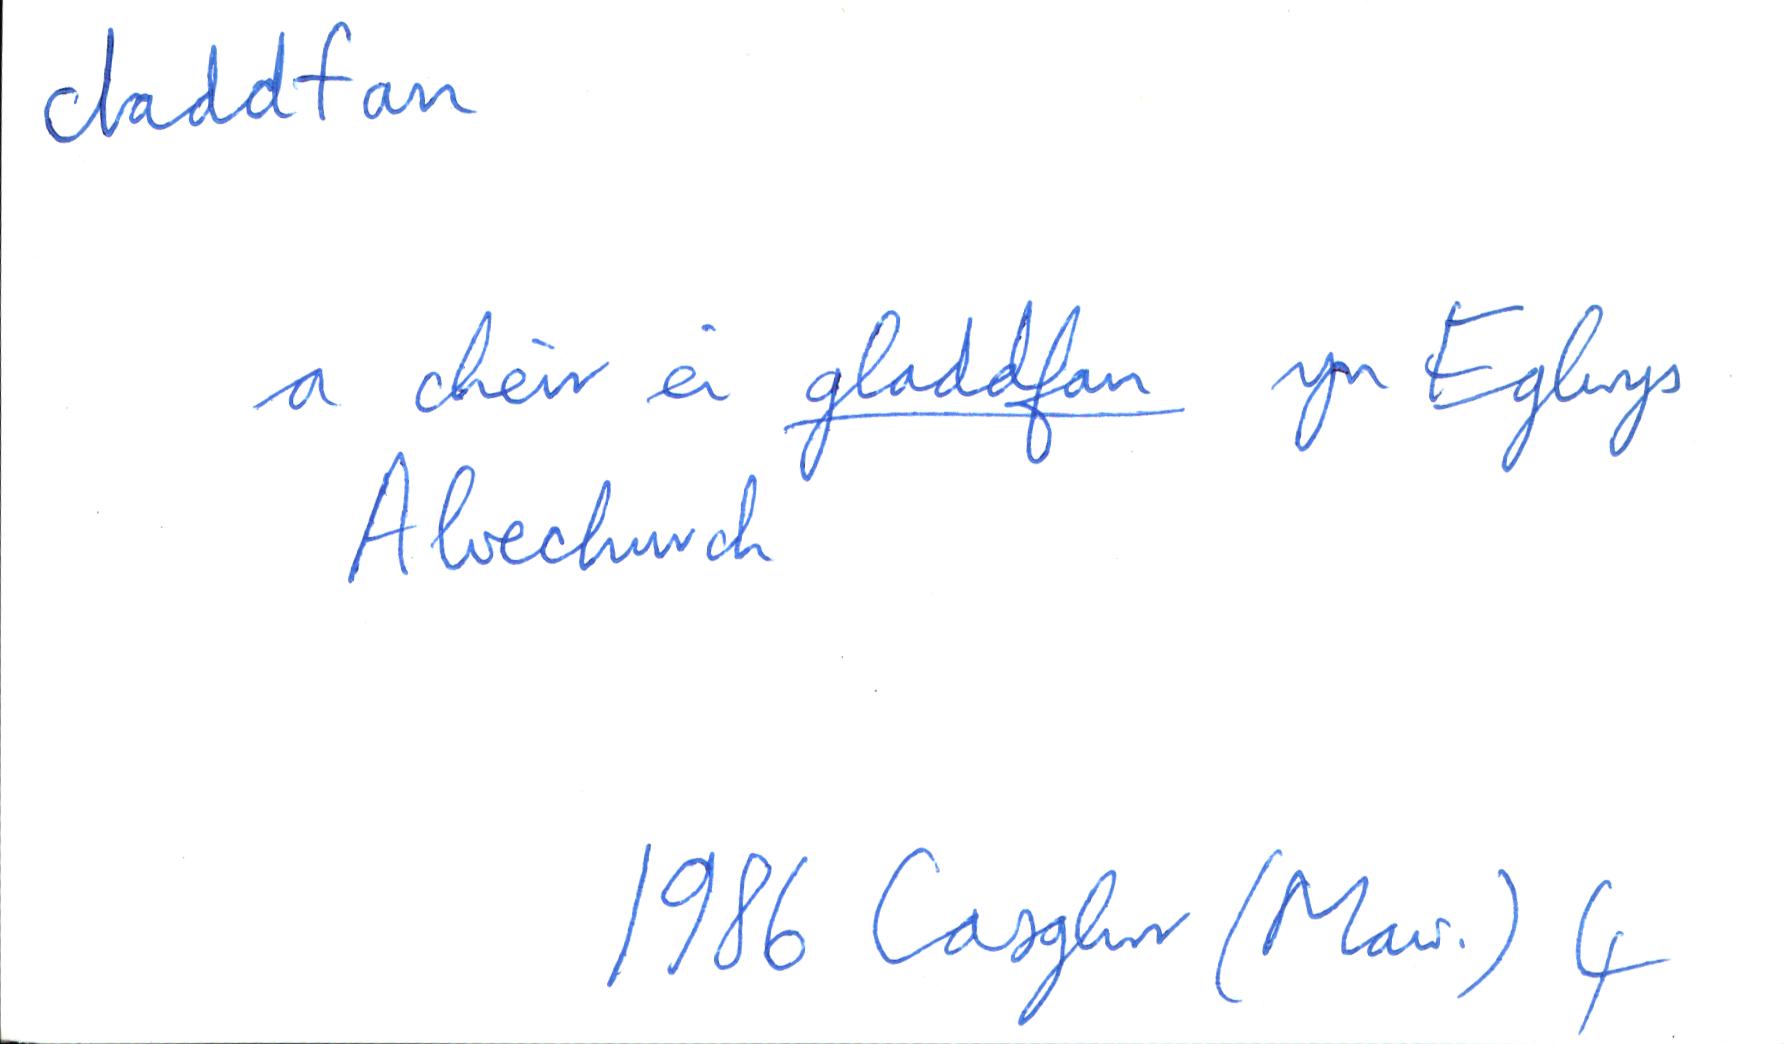 claddfan
a cheir ei gladdfan yn Eglwys
Alvechurch
1986 Casglwr (Maw.) 4